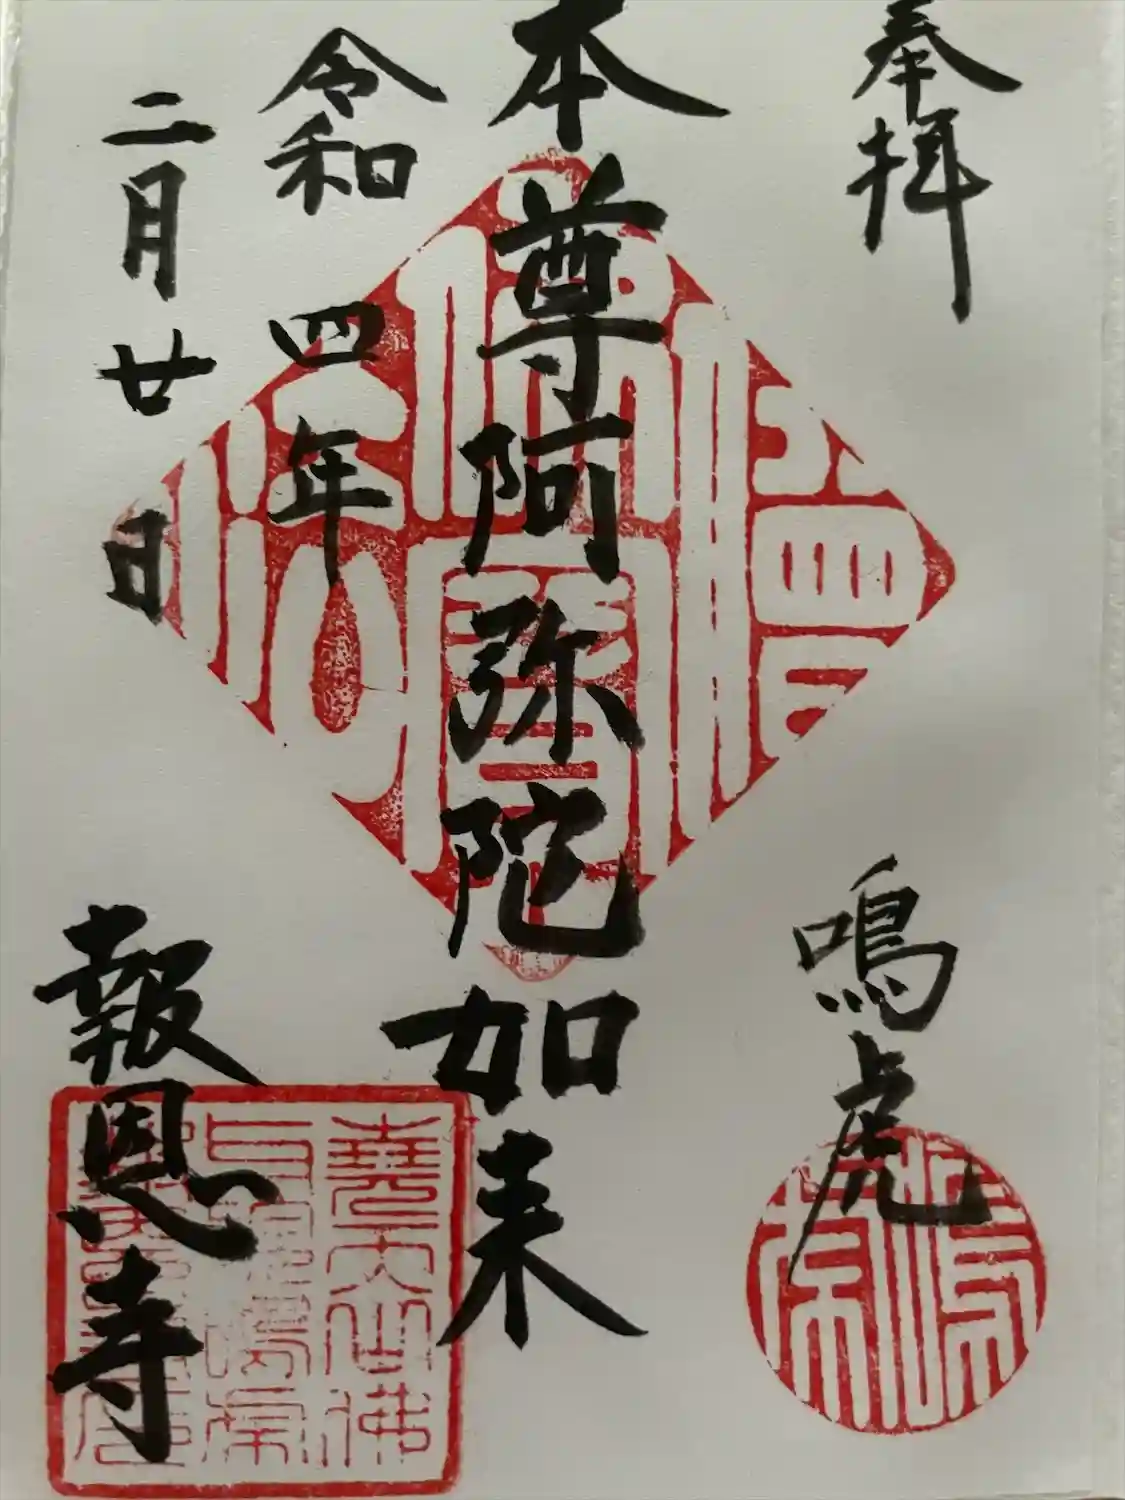 奉拝
鳴虎
本尊阿弥陀如来
令和四年
二月廿日
報恩寺